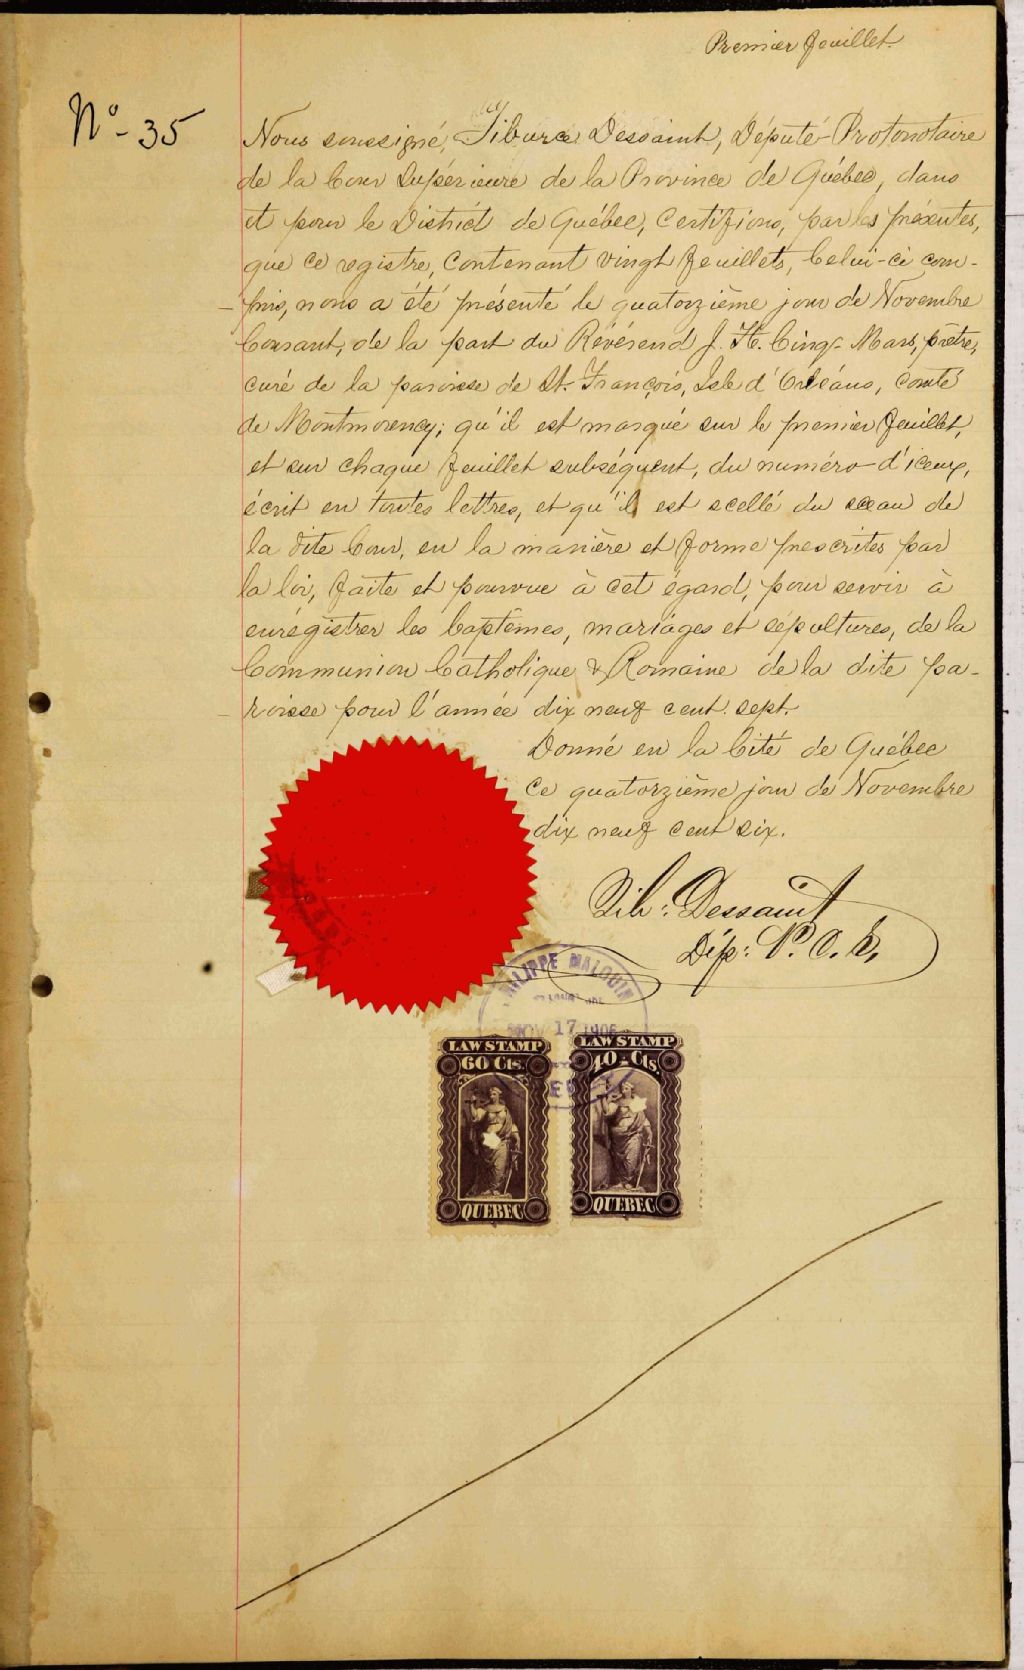 Premier feuillet.
No - 35
Nous soussigné, Tiburce Dessaint, Député-Protonotaire
de la Cour Supérieure de la Province de Québec, dans
et pour le District de Québec, Certifions, par les présentes,
que ce registre, contenant vingt feuillets, Celui-ci com-
-pris, nous a été présenté le quatorzième jour de Novembre
Courant, de la part du Révérend J. H. Cinq-Mars, prêtre,
curé de la paroisse de St. François, Isle d'Orléans, comté
de Montmorency; qu'il est marqué sur le premier feuillet,
et sur chaque feuillet subséquent, du numéro d'iceux,
écrit en toutes lettres, et qu'il est scellé du sceau de
la dite Cour, en la manière et forme prescrites par
la loi, faite et pourvue à cet égard, pour servir à
enrégistrer les baptêmes, mariages et sépultures, de la
Communion Catholique & Romaine de la dite pa-
-roisse pour l'année dix neuf cent sept.
Donné en la Cité de Québec
ce quatorzième jour de Novembre
dix neuf cent six.
Tib: Dessaint
Dép: P. C. S.
PHILIPPE MALOUIN
NOV 17 1906
LAW STAMP LAW STAMP
60 Cts. 40 Cts.
QUEBEC QUEBEC